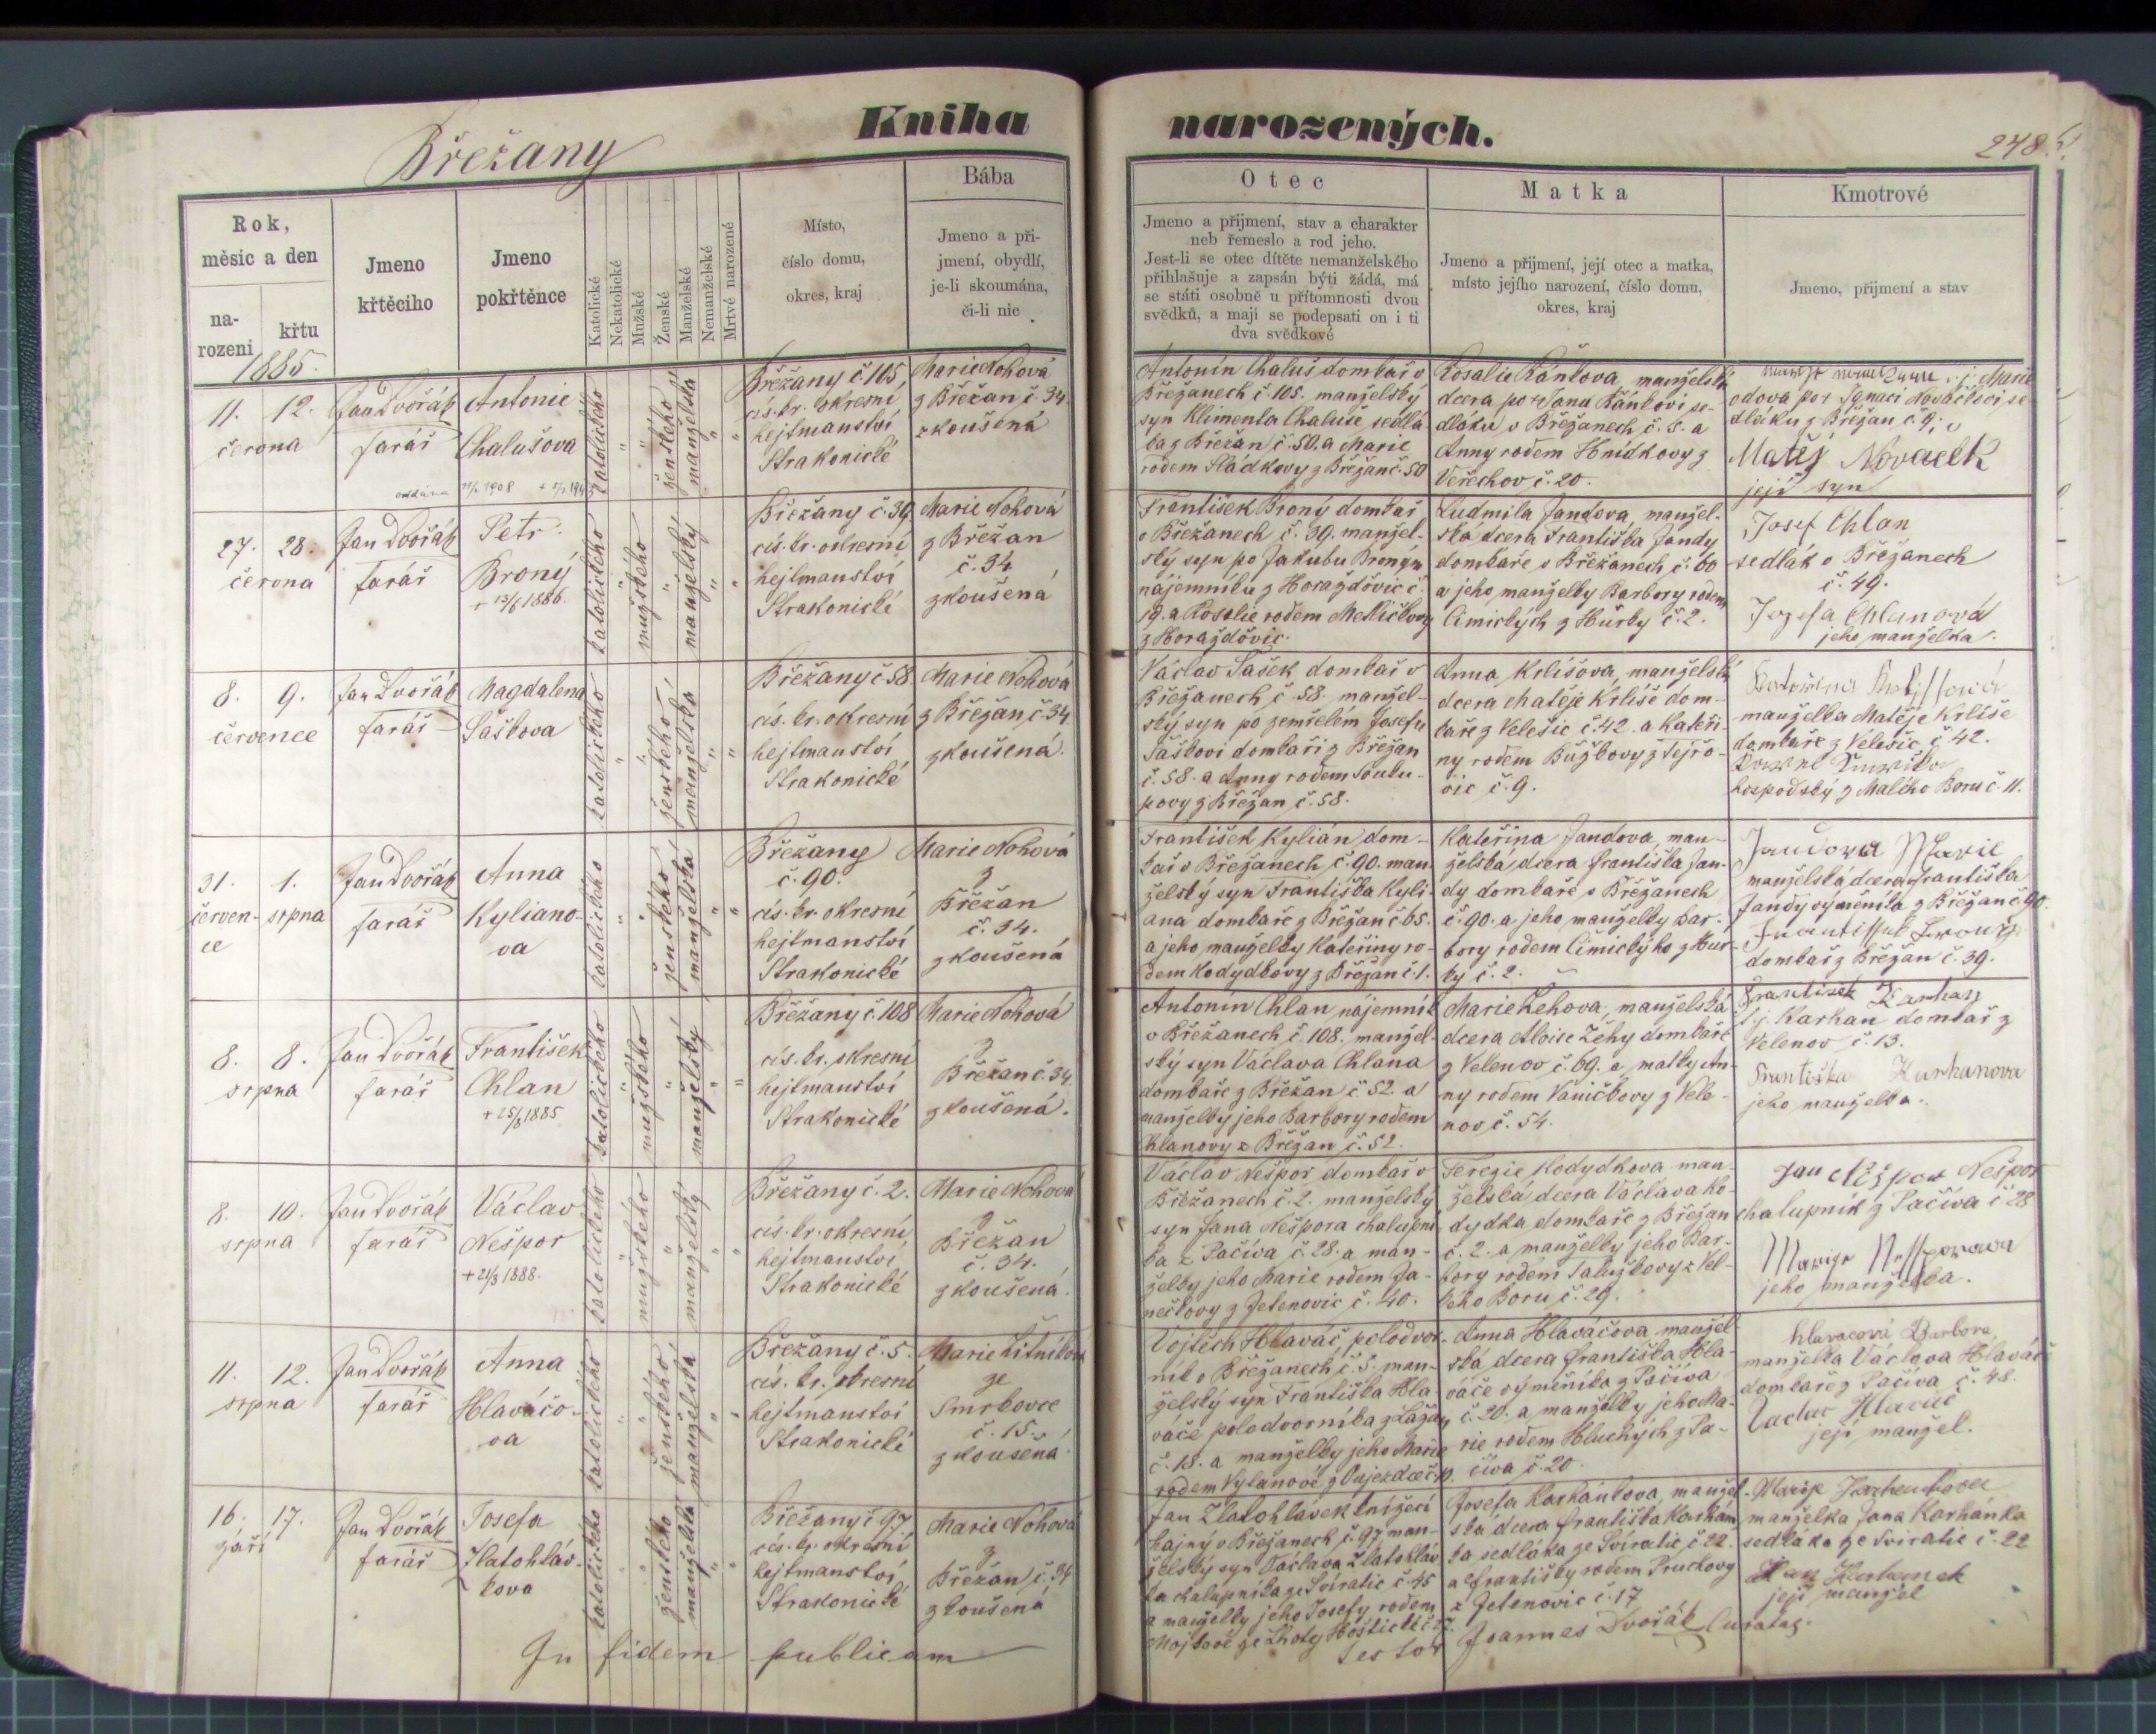 Břežany
Kniha narozených.
248
Rok,
měsic a den
na-
rozeni
křtu
1885.
Jmeno
křtěciho
Jmeno
pokřtěnce
Katolické
Nekatolické
Mužské
Ženské
Manželské
Nemanželské
Mrtvé narozené
Místo,
číslo domu,
okres, kraj
Bába
Jmeno a při-
jmení, obydlí,
je-li skoumána,
či-li nic
Otec
Jmeno a přijmení, stav a charakter
neb řemeslo a rod jeho.
Jest-li se otec dítěte nemanželského
přihlašuje a zapsán býti žádá, má
se státi osobně u přítomnosti dvou
svědků, a mají se podepsati on i ti
dva svědkové
Matka
Jmeno a přijmení, její otec a matka,
místo jejího narození, číslo domu,
okres, kraj
Kmotrové
Jmeno, přijmení a stav
11. 12.
června
Jan Dvořák
farář
Antonie
Chalušova
katolického
ženského
manželská
Břežany č. 105
cís. kr. okresní
hejtmanství
Strakonické
Marie Nohová
z Břežan č. 34
zkoušená
Antonín Chaluš domkař v
Břežanech č. 105. manželský
syn Klimenta Chaluše sedlá
ka z Břežan č. 50. a Marie
rodem Sládkovy z Břežan č. 50
Rosalie Ránkova, manželská
dcera po Janu Ránkovi se-
dláku v Břežanech č. 8. a
Anny rodem Hnídkovy z
Veřechov č. 20.
Marie
vdova po Ignaci Nováčkovi se-
dláku z Břežan č. 9;
Matěj Novacek
její syn
27. 28.
června
Jan Dvořák
farář
Petr
Brony
+ 13/6 1886.
katolického
mužského
manželský
Břežany č. 39
cís. kr. okresní
hejtmanství
Strakonické
Marie Nohová
z Břežan
č. 34
zkoušená
František Brony domkař
v Břežanech č. 39. manžel-
ský syn po Jakubu Broným
nájemníku z Horažďovic č.
19. a Rosalie rodem Metličkovy
z Horažďovic.
Ludmila Jandova, manžel-
ská dcera Františka Jandy
domkaře v Břežanech č. 60
a jeho manželky Barbory rodem
Čimických z Hůrky č. 2.
Josef Chlan
sedlák v Břežanech
č. 49.
Jozefa Chlanová
jeho manželka.
8. 9.
července
Jan Dvořák
farář
Magdalena
Šaškova
katolického
ženského
manželská
Břežany č. 58.
cís. kr. okresní
hejtmanství
Strakonické
Marie Nohová
z Břežan č. 34
zkoušená.
Václav Šašek domkař v
Břežanech č. 58. manžel-
ský syn po zemřelém Josefu
Šaškovi domkaři z Břežan
č. 58. a Anny rodem Souku-
povy z Břežan č. 58.
Anna Krlišova, manželská
dcera Matěje Krliše dom-
kaře z Velešic č. 42. a Kateři-
ny rodem Bužkovy z Tejřo-
vic č. 9.
manželka Matěje Krliše
domkaře z Velešic č. 42.
hospodský z Malého Boru č. 11.
31. 1.
červen- srpna
ce
Jan Dvořák
farář
Anna
Kyliano-
va
katolického
ženského
manželská
Břežany
č. 90.
cís. kr. okresní
hejtmanství
Strakonické
Marie Nohová
z
Břežan
č. 34.
zkoušená
František Kylián dom-
kař v Břežanech č. 90. man-
želský syn Františka Kyli-
ana domkaře z Břežan č. 65.
a jeho manželky Kateřiny ro-
dem Kodydkovy z Břežan č. 1.
Kateřina Jandova, man-
želská dcera Františka Jan-
dy domkaře v Břežanech
č. 90. a jeho manželky Bar-
bory rodem Čimického z Hůr-
ky č. 2.
Jandova Marie
manželská dcera Františka
Jandy výměníka z Břežan č. 90.
domkař z Břežan č. 39.
8. 8.
srpna
Jan Dvořák
farář
František
Chlan
+ 25/8 1885
katolického
mužského
manželský
Břežany č. 108
cís. kr. okresní
hejtmanství
Strakonické
Marie Nohová
z
Břežan č. 34.
zkoušená.
Antonín Chlan nájemník
v Břežanech č. 108. manžel-
ský syn Václava Chlana
domkaře z Břežan č. 52. a
manželky jeho Barbory rodem
Chlanovy z Břežan č. 52.
Marie Žehova, manželská
dcera Aloise Žehy domkaře
z Velenov č. 69. a matky An-
ny rodem Vaničkovy z Vele-
nov č. 54.
František Karhan
t.j. Karhan domkař z
Velenov č. 13.
Františka Karhanova
jeho manželka.
8. 10.
srpna
Jan Dvořák
farář
Václav
Nešpor
+ 21/3 1888.
katolického
mužského
manželský
Břežany č. 2.
cís. kr. okresní
hejtmanství
Strakonické
Marie Nohová
z
Břežan
č. 34.
zkoušená.
Václav Nešpor domkař v
Břežanech č. 2. manželský
syn Jana Nešpora chalupní
ka z Pačiva č. 28. a man-
želky jeho Marie rodem Ja-
nečkovy z Jetenovic č. 40.
Terezie Kodydkova man-
želská dcera Václava Ko-
dydka domkaře z Břežan
č. 2. a manželky jeho Bar-
bory rodem Valuškovy z Vel-
kého Boru č. 29.
Jan Nešpor Nešpor
chalupník z Pačiva č. 28
jeho manželka.
11. 12.
srpna
Jan Dvořák
farář
Anna
Hlaváčo-
va
katolického
ženského
manželská
Břežany č. 5.
cís. kr. okresní
hejtmanství
Strakonické
Marie
ze
Smrkovce
č. 15.
zkoušená.
Vojtěch Hlaváč polodvor-
ník v Břežanech č. 5. man-
želský syn Františka Hla-
váče polodvorníka z Lažan
č. 18. a manželky jeho Marie
Anna Hlaváčova manžel-
ská dcera Františka Hla-
váče výměníka z Pačiva
č. 20. a manželky jeho Ma-
rie rodem Hluchých z Pa-
čiva č. 20.
Hlavacová Barbora,
manželka Václava Hlaváče
domkaře z Pačiva č. 48.
její manžel.
16. 17.
září
Jan Dvořák
farář
Josefa
Zlatohláv-
kova
katolického
ženského
manželská
Břežany č. 97
cís. kr. okresní
hejtmanství
Strakonické
Marie Nohová
z
Břežan č. 34
zkoušená
Jan Zlatohlávek knížecí
hajný v Břežanech č. 97 man-
želský syn Václava Zlatohláv
ka chalupníka ze Svíratic č. 45
a manželky jeho Josefy rodem
Josefa Karhánkova, manžel-
ská dcera Františka Karhán
ka sedláka ze Svíratic č. 22.
a Františky rodem Pruchovy
z Jetenovic č. 17
manželka Jana Karhánka
sedláka ze Sviratic č. 22
Jan Karhanek
její manžel
In fidem publicam
Testor Joannes Dvořák Curatus.